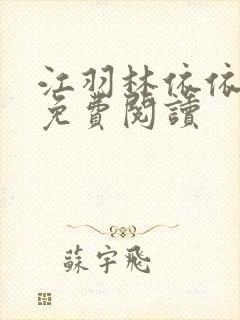 江羽林依依
免費閱讀
蘇宇飛